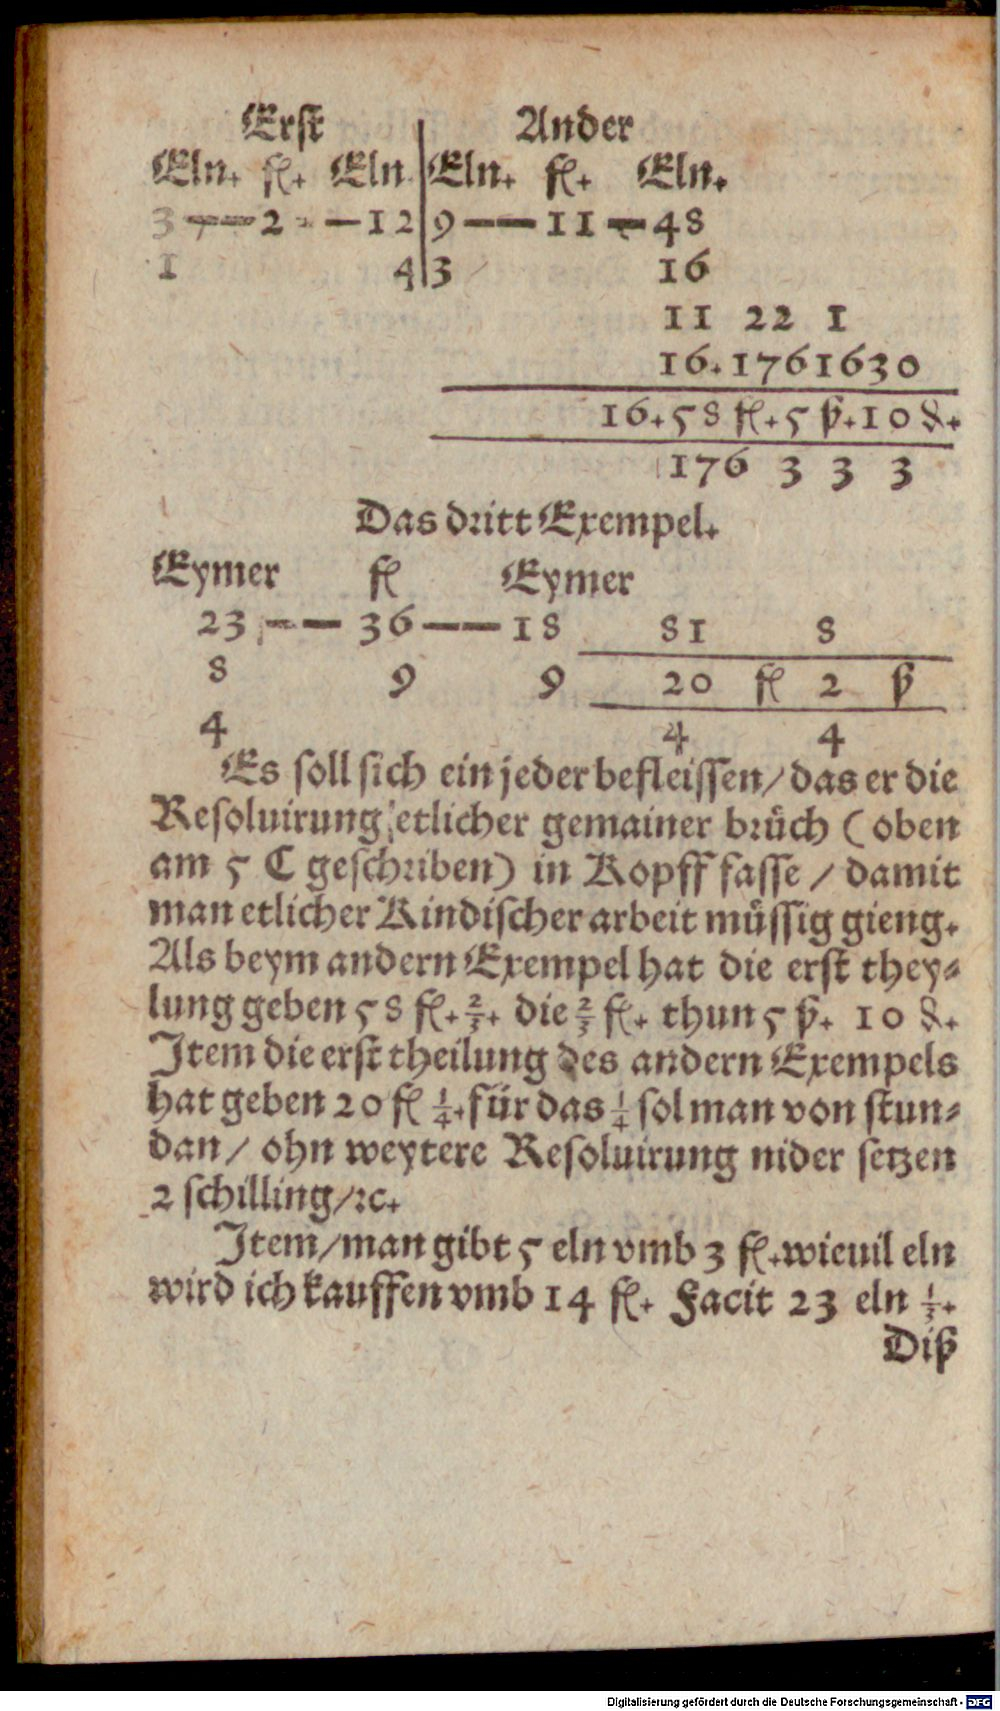 Erst Ander
Eln. fl. Eln. Eln. fl. Eln.
3 — 2 — 12 9 — 11 — 48
1 4 3 16
11 22 1
16. 176 1630
16. 58 fl. 5 ß. 10 ₰.
176 3 3 3
Das dritt Exempel.
Eymer fl Eymer
23 — 36 — 18 81 8
8 9 9 20 fl 2 ß
4 4 4
Es soll sich ein jeder befleissen/ das er die
Resoluirung etlicher gemainer brüch (oben
am 5 C geschriben) in Kopff fasse / damit
man etlicher Kindischer arbeit müssig gieng.
Als beym andern Exempel hat die erst they⸗
lung geben 58 fl. 2/3. die 2/3 fl. thun 5 ß. 10 ₰.
Item die erst theilung des andern Exempels
hat geben 20 fl 1/4. für das 1/4 sol man von stun⸗
dan / ohn weytere Resoluirung nider setzen
2 schilling/ꝛc.
Item/man gibt 5 eln vmb 3 fl. wieuil eln
wird ich kauffen vmb 14 fl. Facit 23 eln 1/3.
Diß
Digitalisierung gefördert durch die Deutsche Forschungsgemeinschaft - DFG